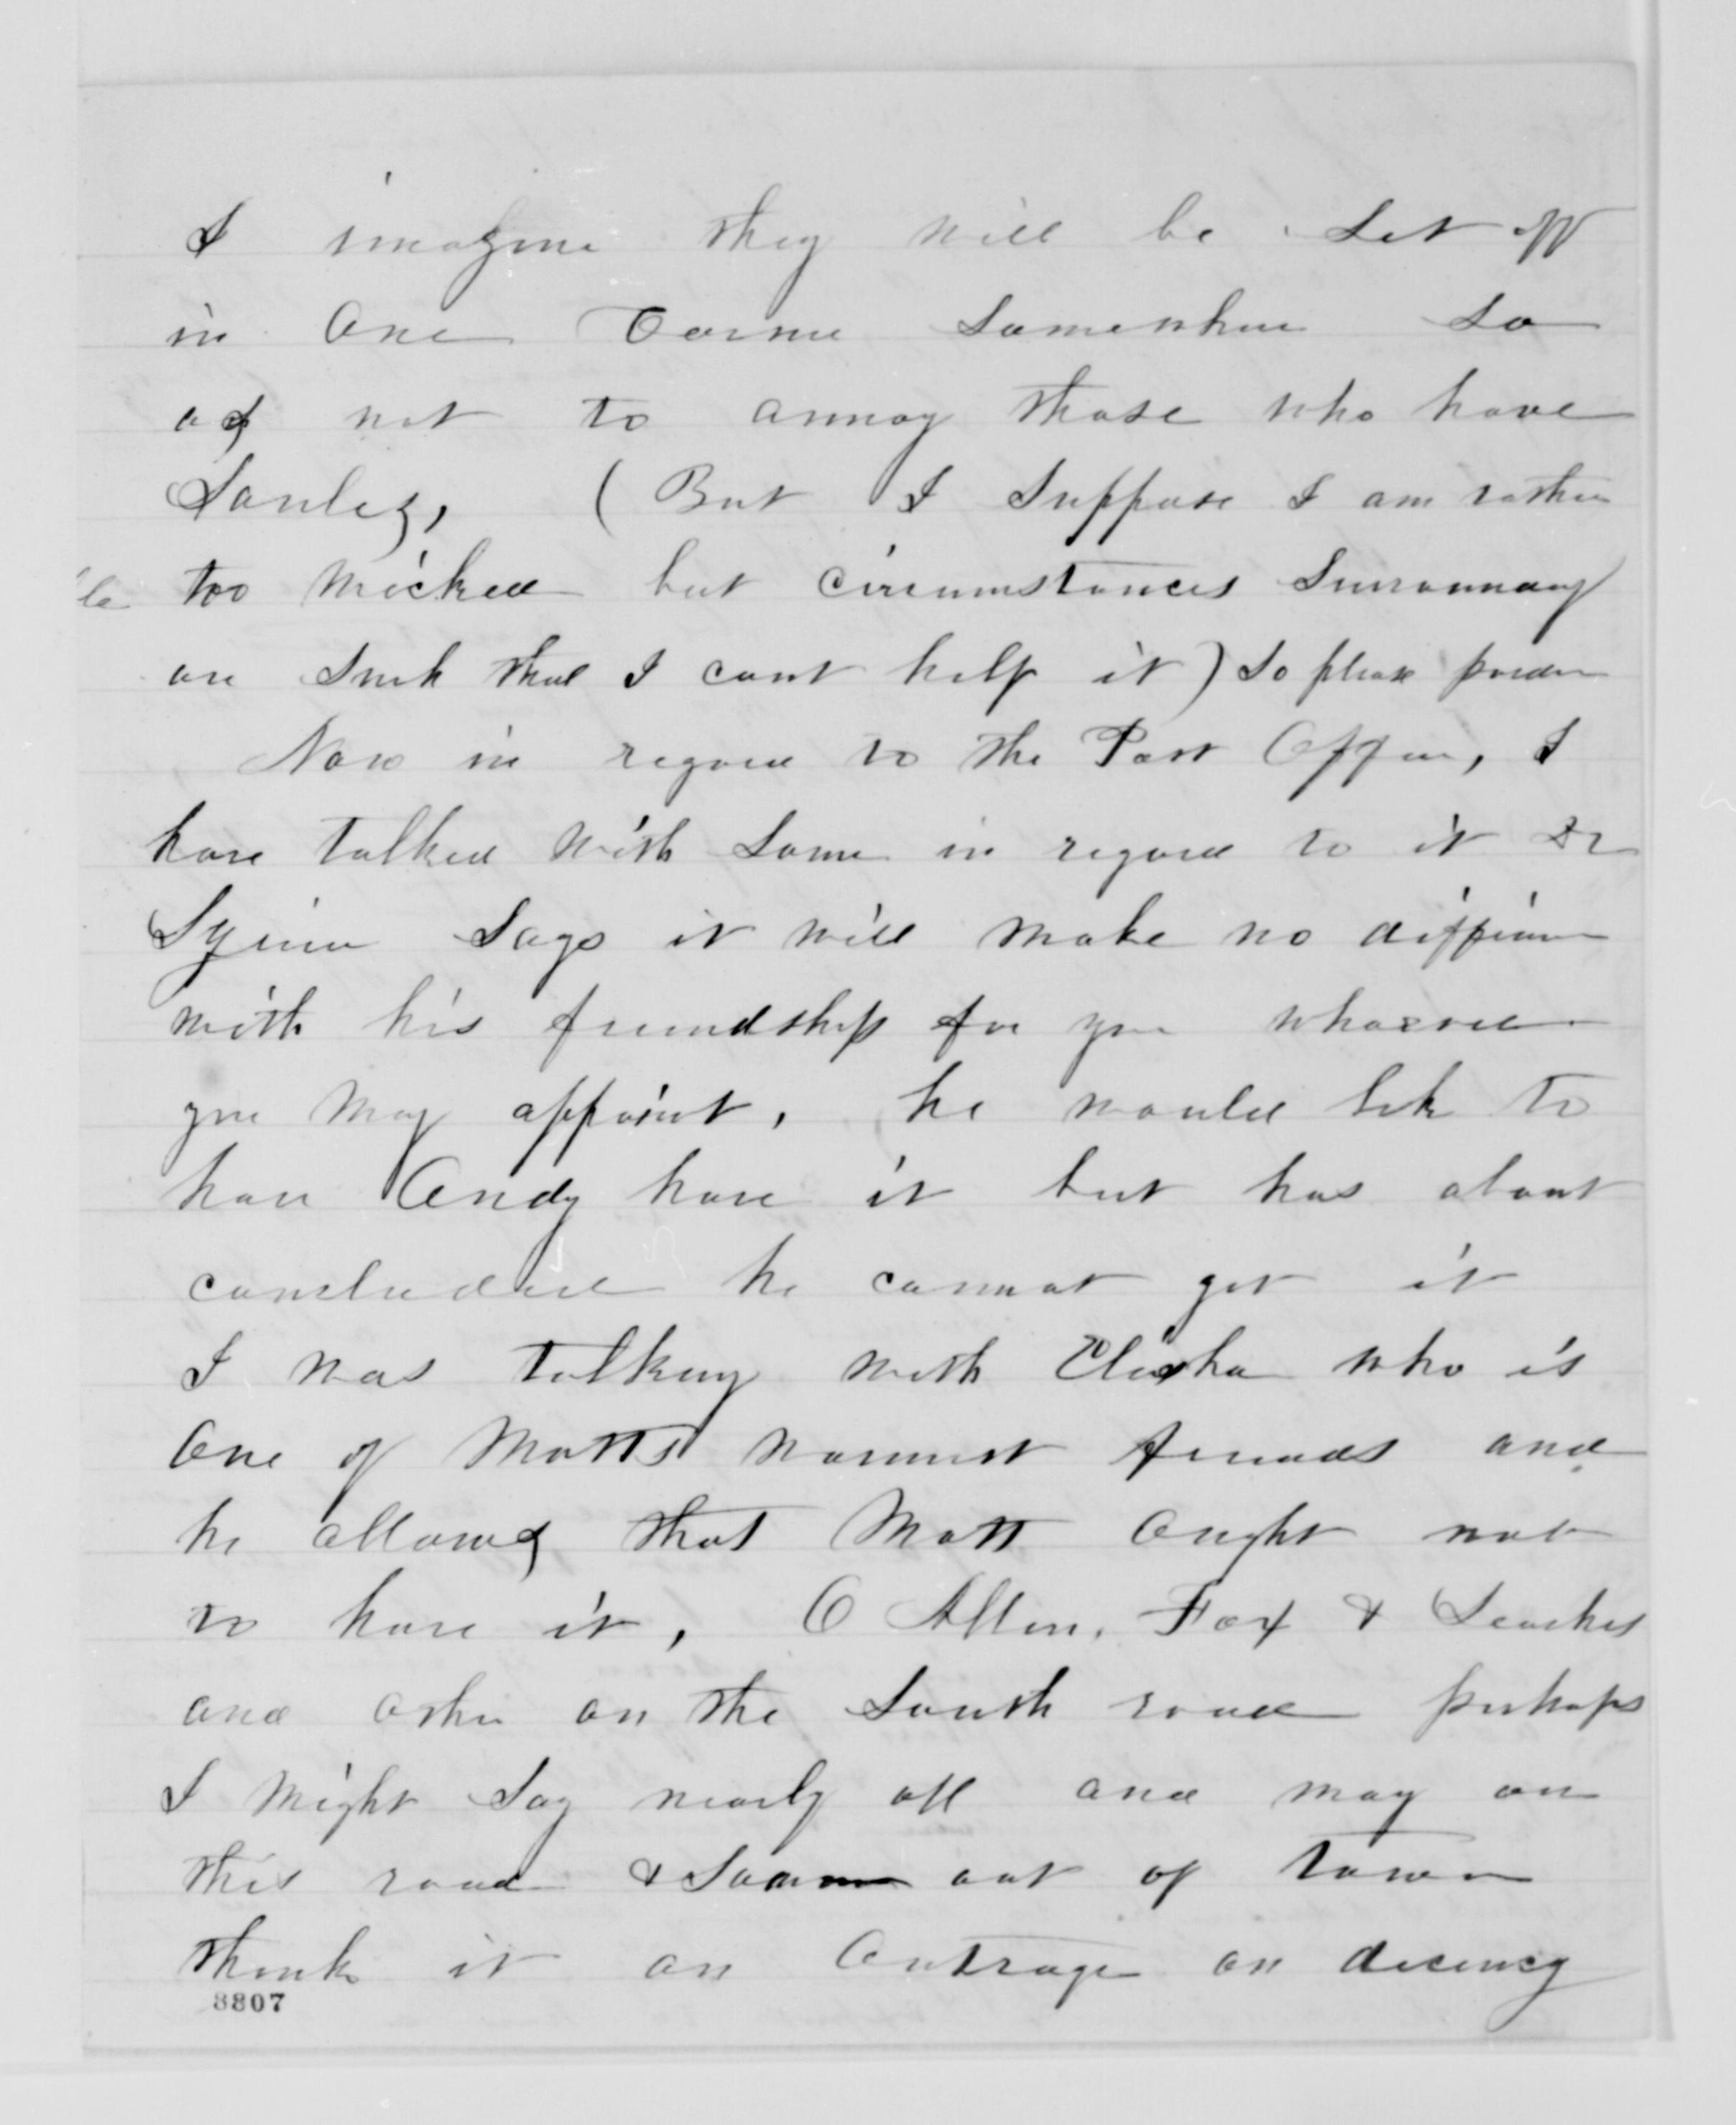 I imagine they will be set off
in one corner somewhere so
as not to annoy those who have
Soules, ( But I suppose I am rather
too wicked but circumstances surrounding
are such that I cant help it ) So please pardon
Now in regard to the Post Office, I
have talked with some in regard to it
Squire says it will make no difference
with his friendship for you whoever
you may appoint, he would like to
have Andy have it but has about
concluded he cannot get it
I was talking with Elisha who is
one of Motts warmest friends and
he allows that Mott ought not
to have it, O Allen, Fox &
and other on the South road perhaps
I might say nearly all and may on
this road & some out of town
think it an outrage on decency
8807